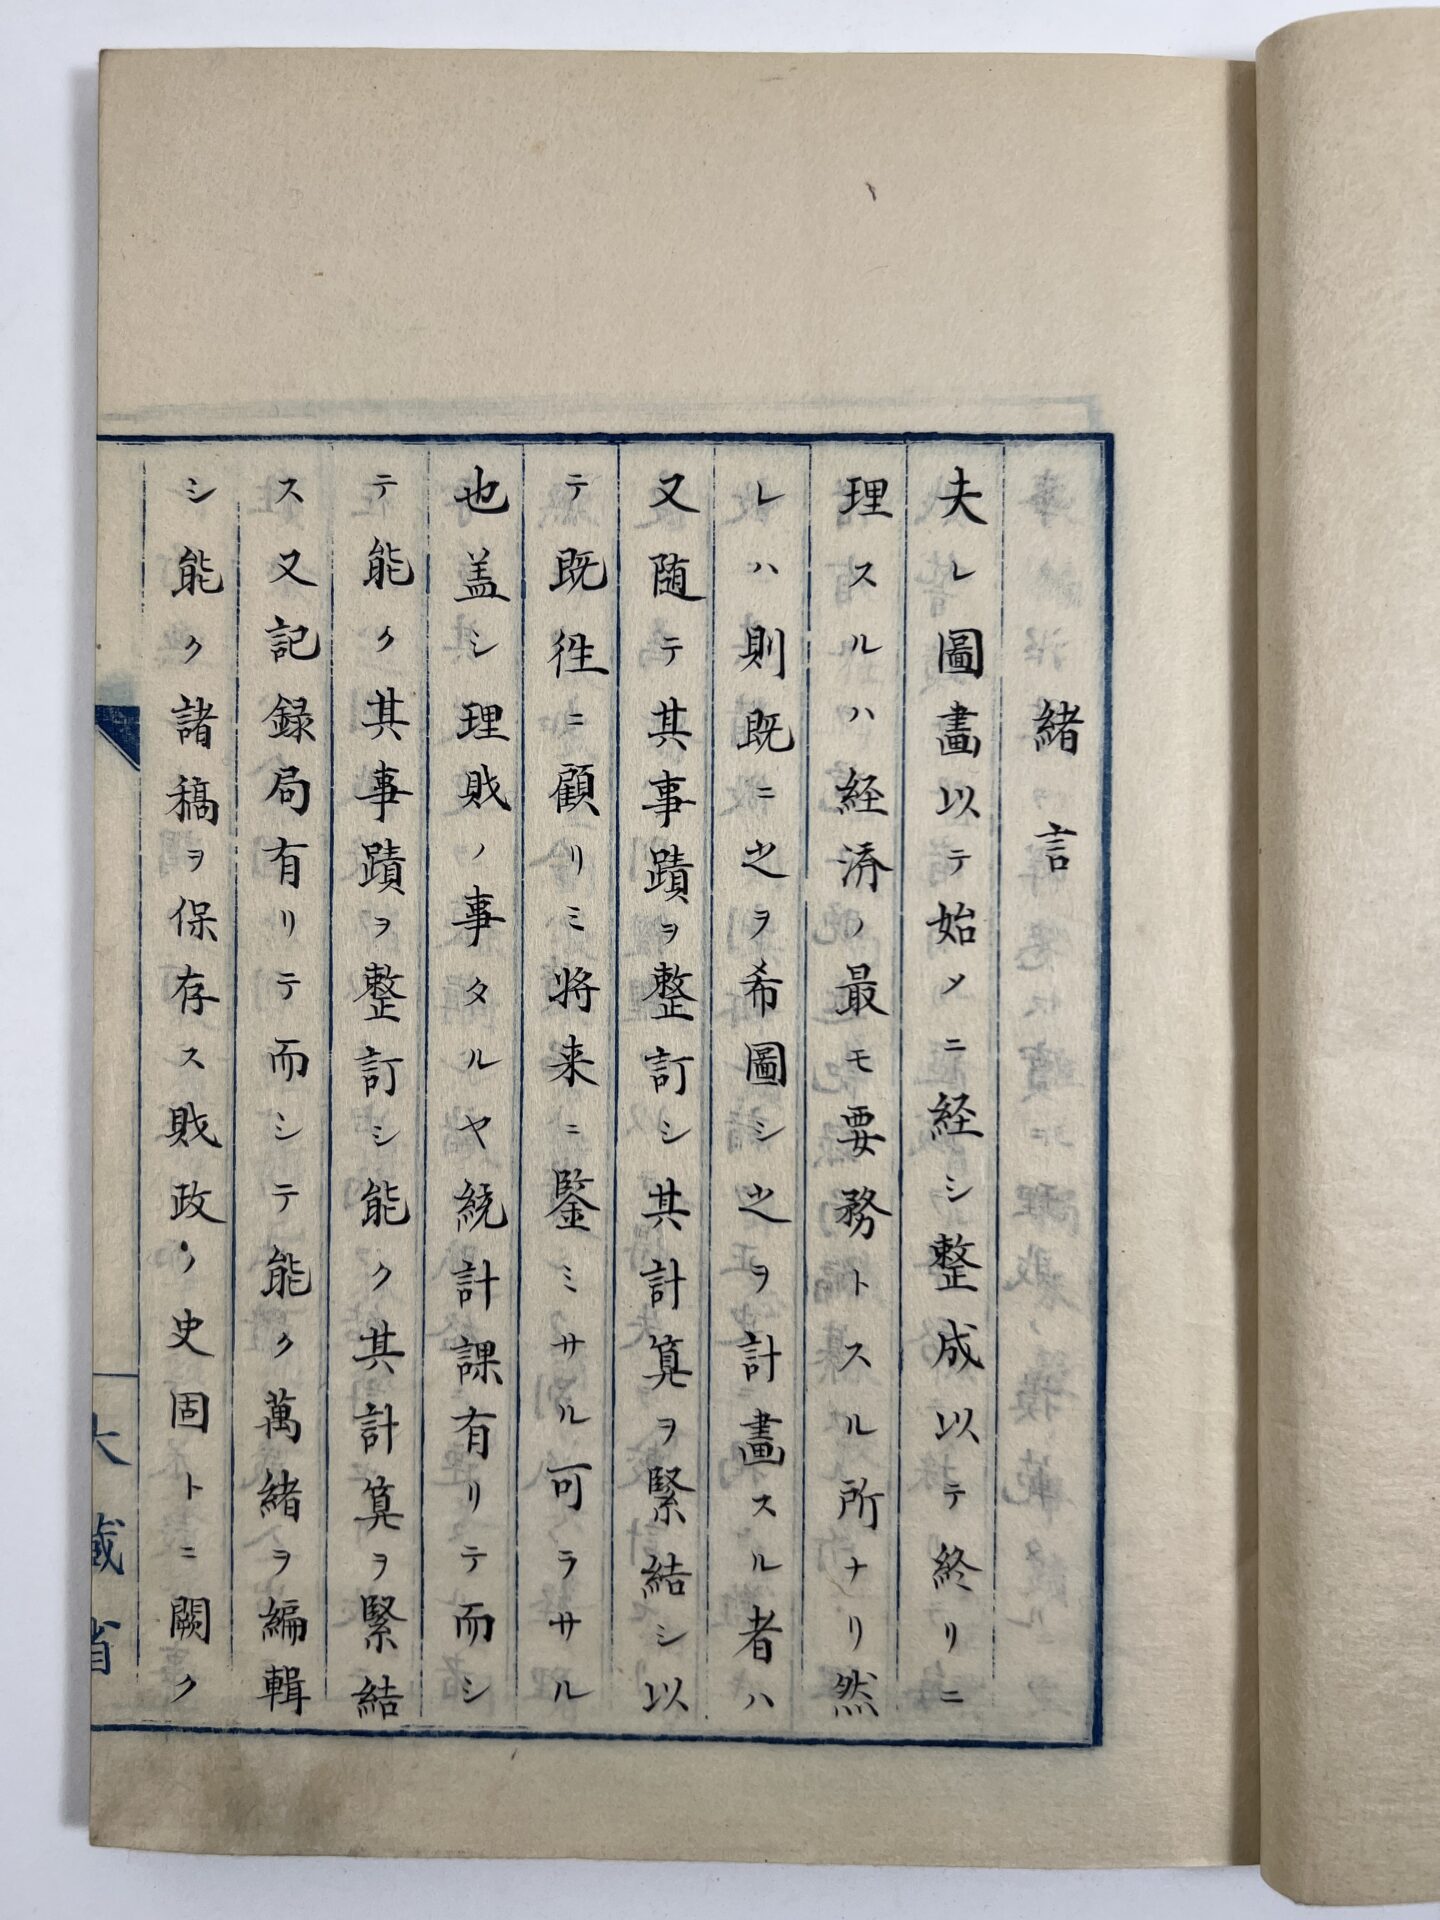 緒言
夫レ圖畫以テ始メニ経シ整成以テ終リニ
理スルハ経済ノ最モ要務トスル所ナリ然
レハ則既ニ之ヲ希圖シ之ヲ計畫スル者ハ
又随テ其事蹟ヲ整訂シ其計算ヲ緊結シ以
テ既徃ニ顧リミ将来ニ鑒ミサル可ラサル
也盖シ理財ノ事タルヤ統計課有リテ而シ
テ能ク其事蹟ヲ整訂シ能ク其計算ヲ緊結
ス又記録局有リテ而シテ能ク萬緒ヲ編輯
シ能ク諸稿ヲ保存ス財政ノ史固トニ闕ク
大藏省